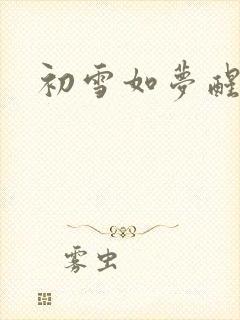 初雪如夢醒
雾虫